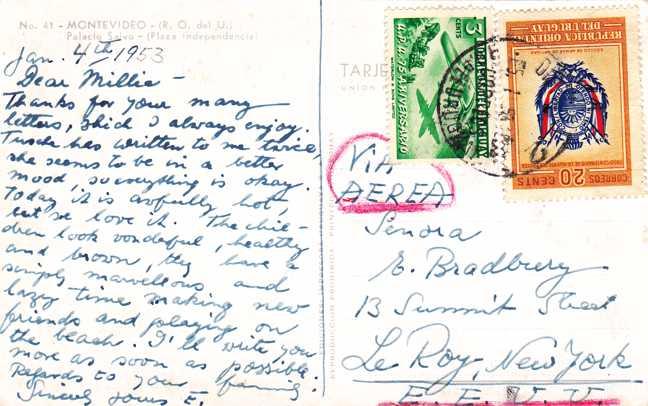 No. 41 - MONTEVIDEO - (R. O. del U.)
Palacio Salvo - (Plaza Independencia)
Jan. 4th 1953
Dear Millie -
Thanks for your many
letters, which I always enjoy.
has written to me twice,
she seems to be in a better
mood, so everything is okay.
Today it is awfully hot,
but we love it. The chil-
dren look wonderful, healthy
and brown, they have a
simply marvellous and
lazy time making new
friends and playing on
the beach. I'll write you
more as soon as possible.
Regards to your family.
Sincerly yours E.
TARJE
UNION
3
CENTS
U.P.U. 75 ANIVERSARIO
REPUBLICA ORIENTAL
DEL URUGUAY
CORREOS 20 CENTS
VIA
AEREA
Senora
E. Bradbury
13 Summit Street
Le Roy, New York
E. E. U. U.